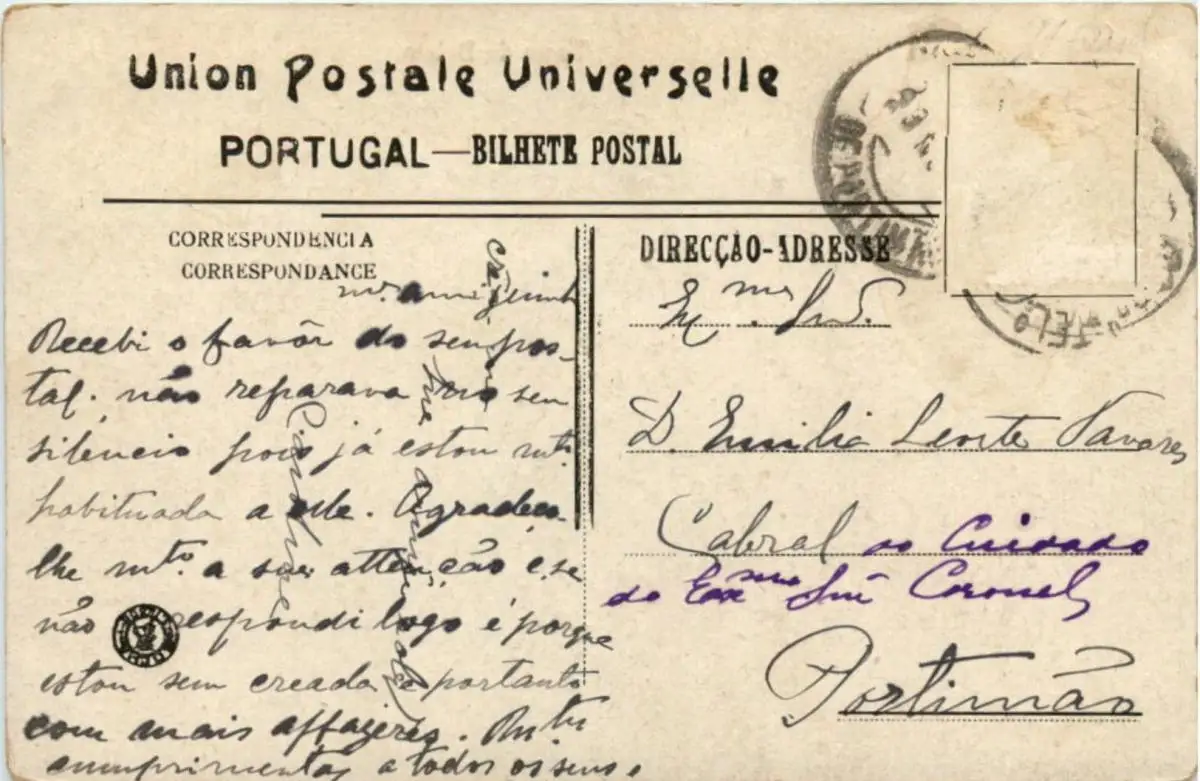 Union Postale Universelle
PORTUGAL—BILHETE POSTAL
CORRESPONDENCIA
CORRESPONDANCE
DIRECÇÃO-ADRESSE
DE PORTIMÃ
TEL
mᵃ. amiguinha
Recebi o favôr do seu pos-
tal. não reparava no seu
silencio pois já estou mᵗᵒ.
habituada a elle. Agradeço-
lhe mᵗᵒ. a sua attenção e se
não respondi logo é porque
estou sem creada e portanto
com mais affazeres.
cumprimentos a todos os seus
Exᵐᵃ. Snrᵃ.
D. Emilia Leote Tavares
Cabral ao Cuidado
do Exᵐᵒ Snr Coronel
Portimão